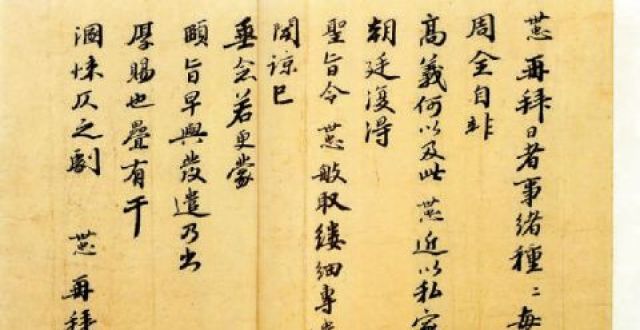 再拜日者事緒種〻每
周全自非
高義何以及此 近以私
朝廷復得
聖旨令 敏取縷細專
聞諒已
垂念若更蒙
頤旨早與發遣乃出
厚賜也疊有干
溷悚仄之劇 再拜